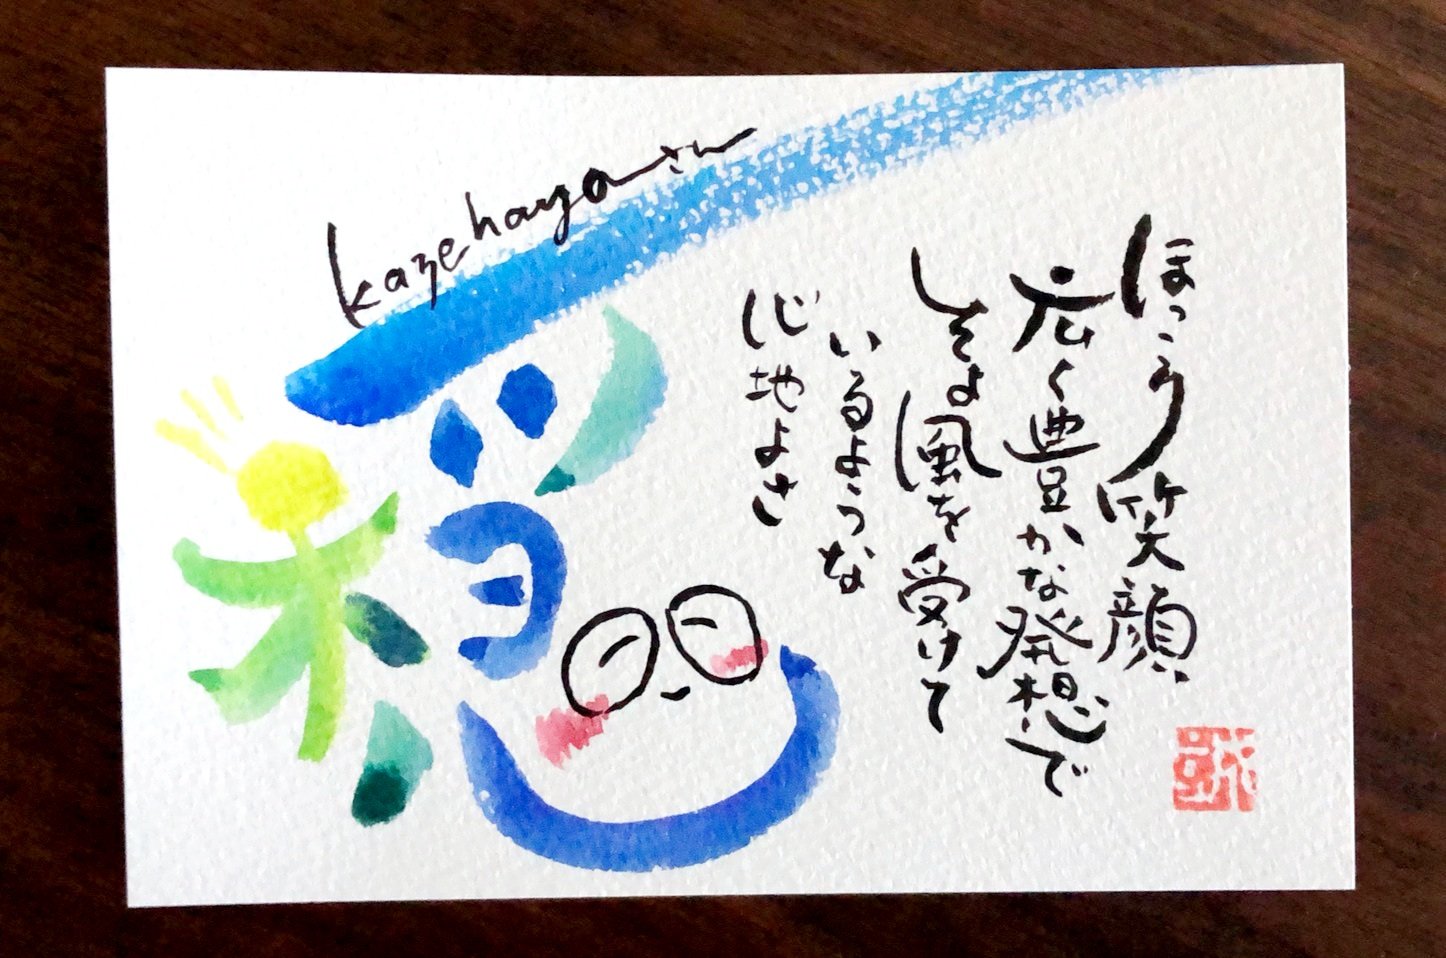 kazehayaさん
穏
ほっこり笑顔
広く豊かな発想で
そよ風を受けて
いるような
心地よさ